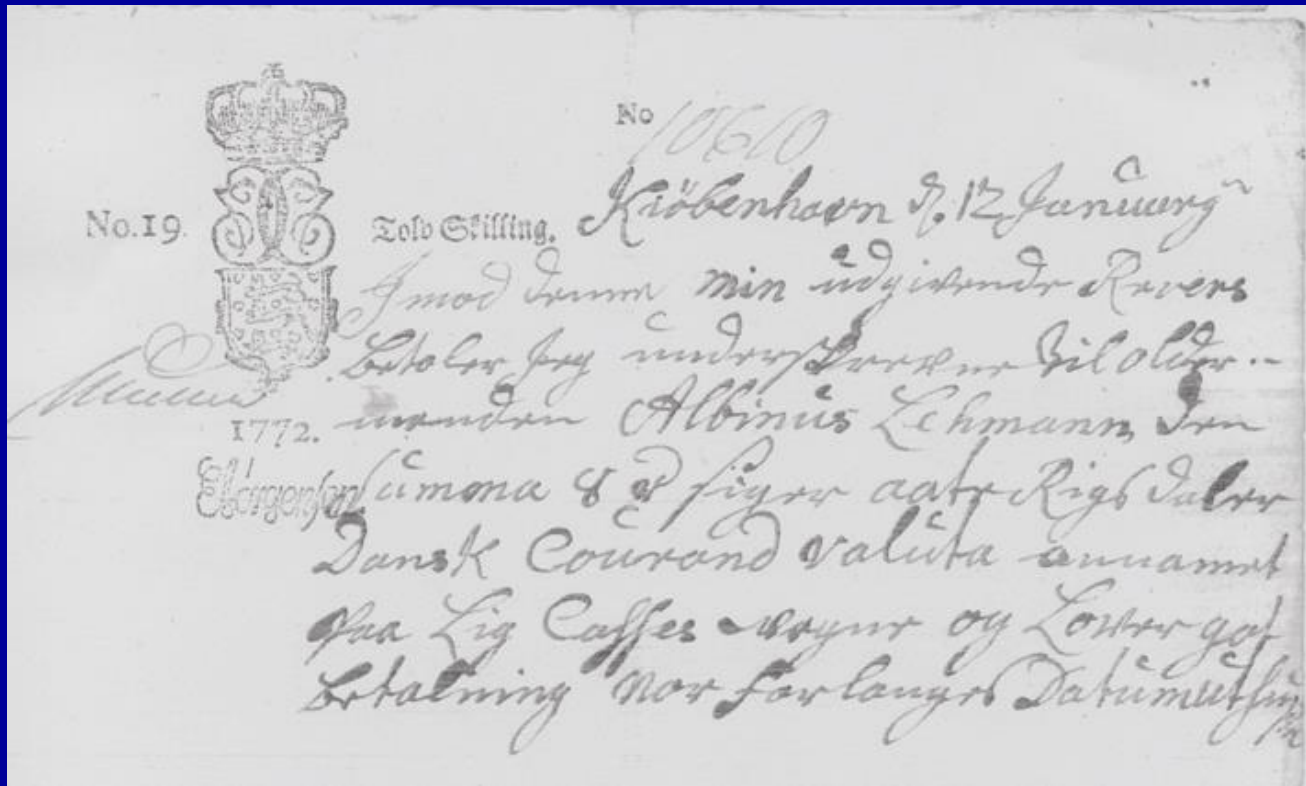 No 10610
No. 19. Tolv Skilling. Kiöbenhavn d. 12 January
Imod denne min udgivende Revers
betaler Jeg underskrevne til older-
manden Albinus Lehmann den
1772.
Summa 8 siger aate Rigsdaler
Dansk Courand valuta annamet
paa Lig Casses vegne og Lover got
betalning nor forlanges Datum ut